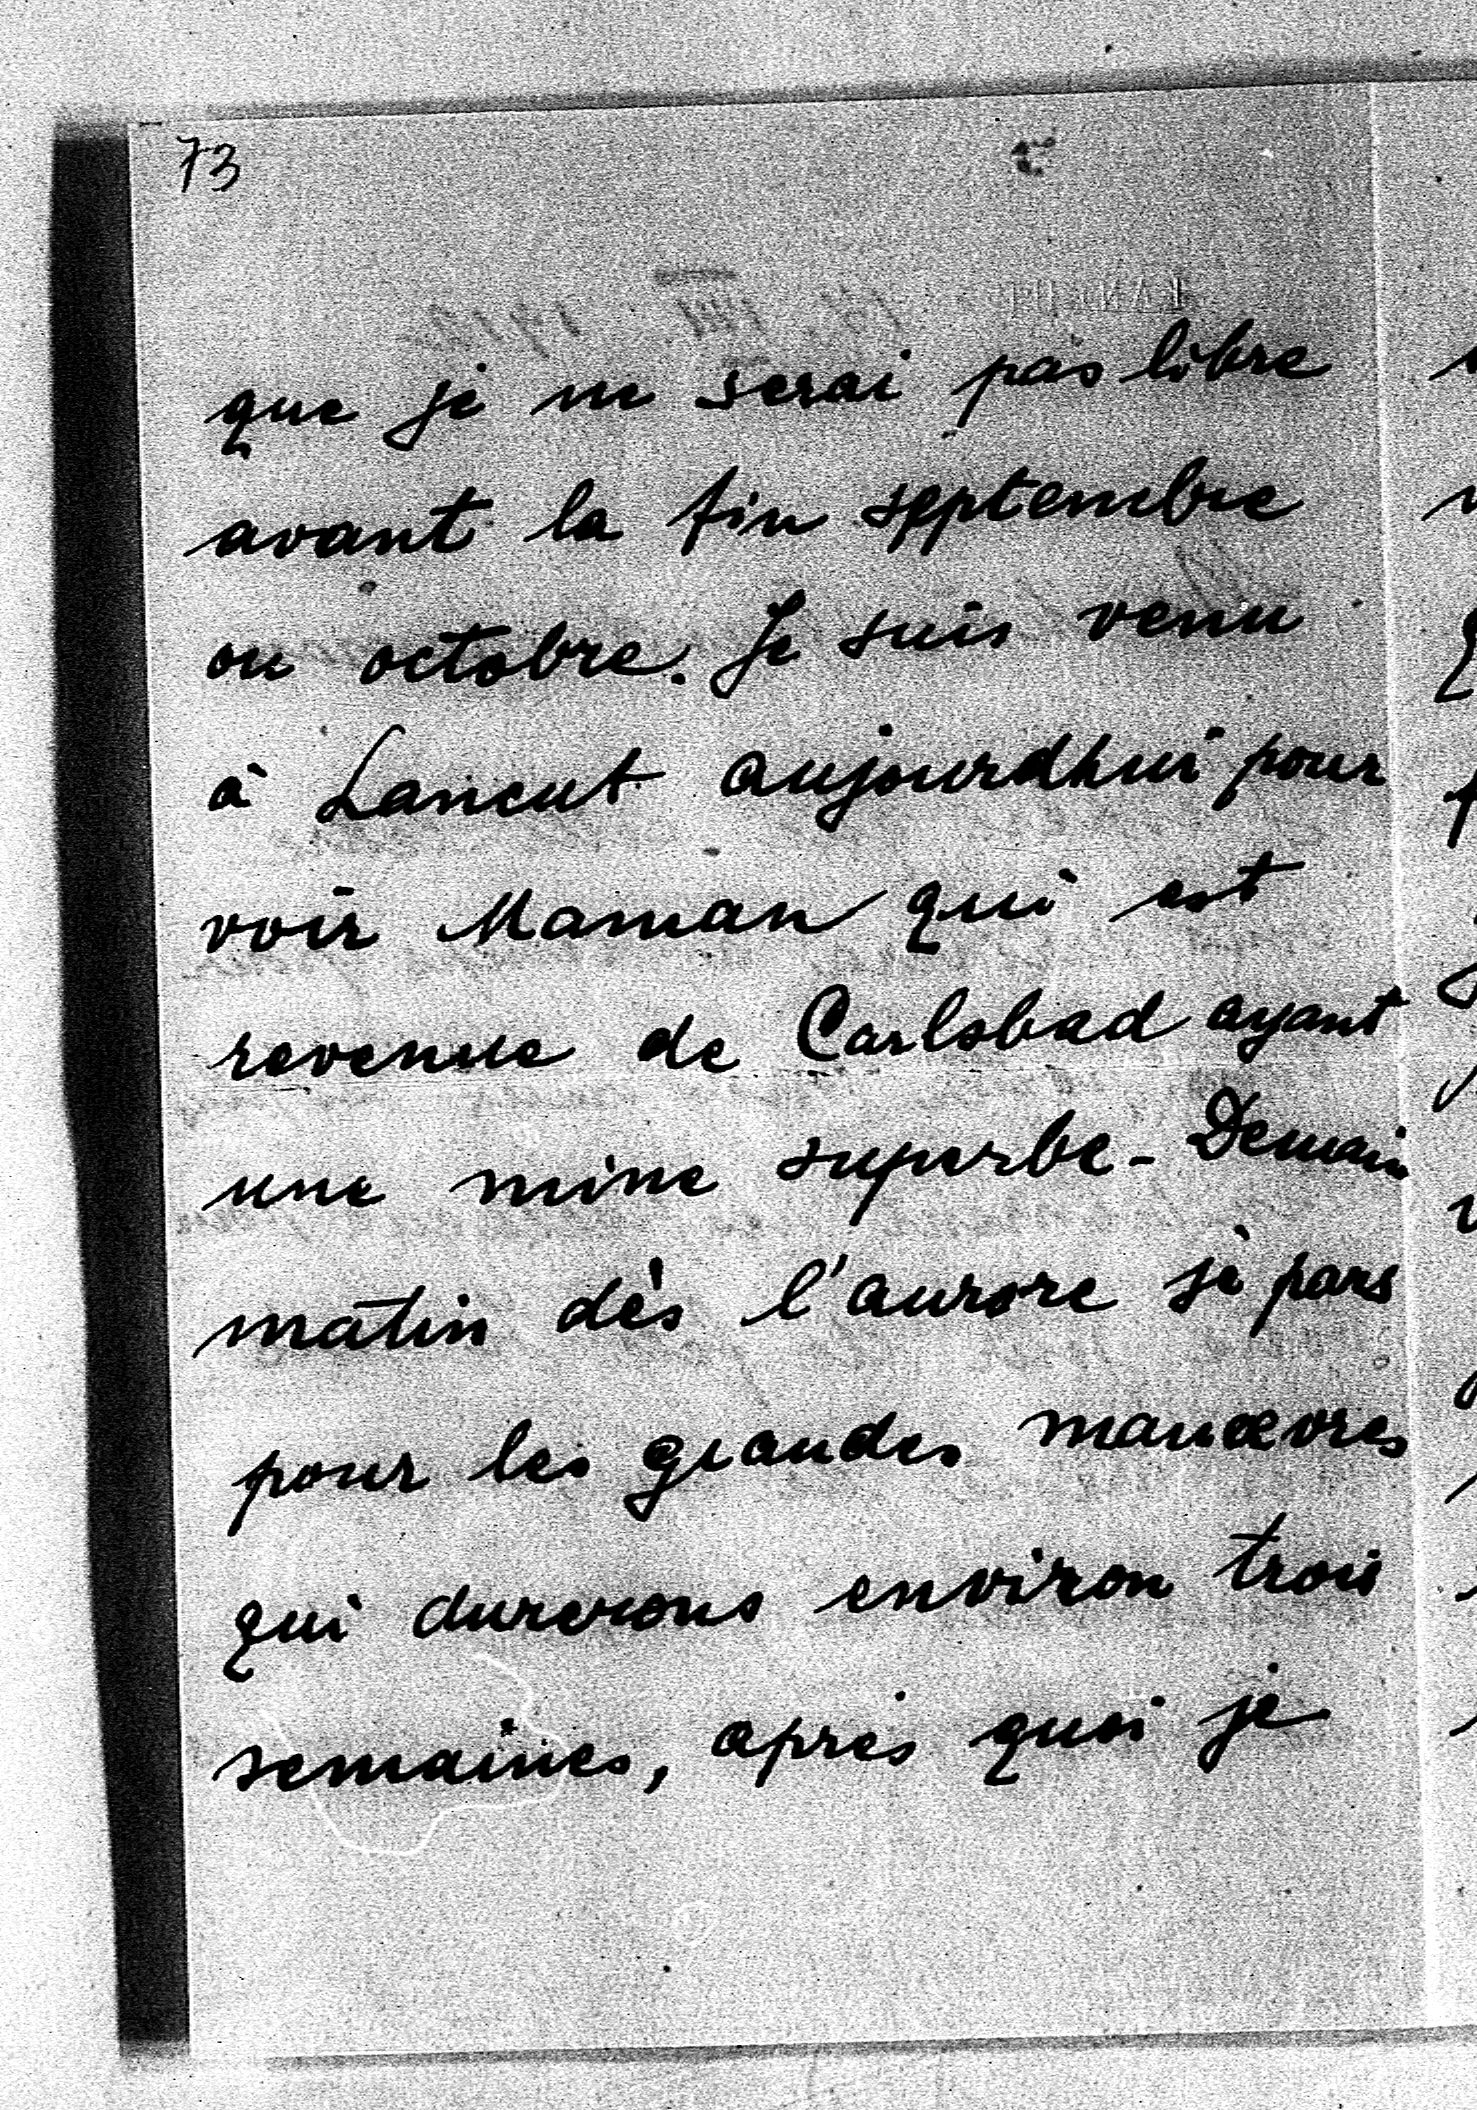 73
que je ne serai pas libre
avant la fin septembre
ou octobre. Je suis venu
à Lancut aujourdhui pour
voir Maman qui est
revenue de Carlsbad ayant
une mine superbe - Demain
matin dès l'aurore je pars
pour les grandes manœvres
qui durerons environ trois
semaines, après quoi je